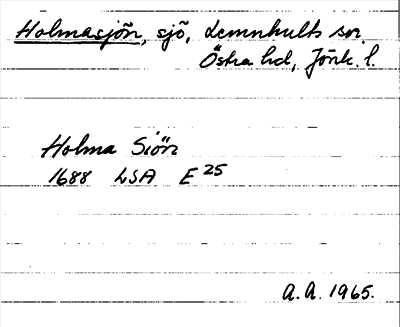 Holmasjön, sjö, Lemnhults sn.
Östra hd, Jönk. l.
Holma Siön
1688 LSA E 25
A.A. 1965.